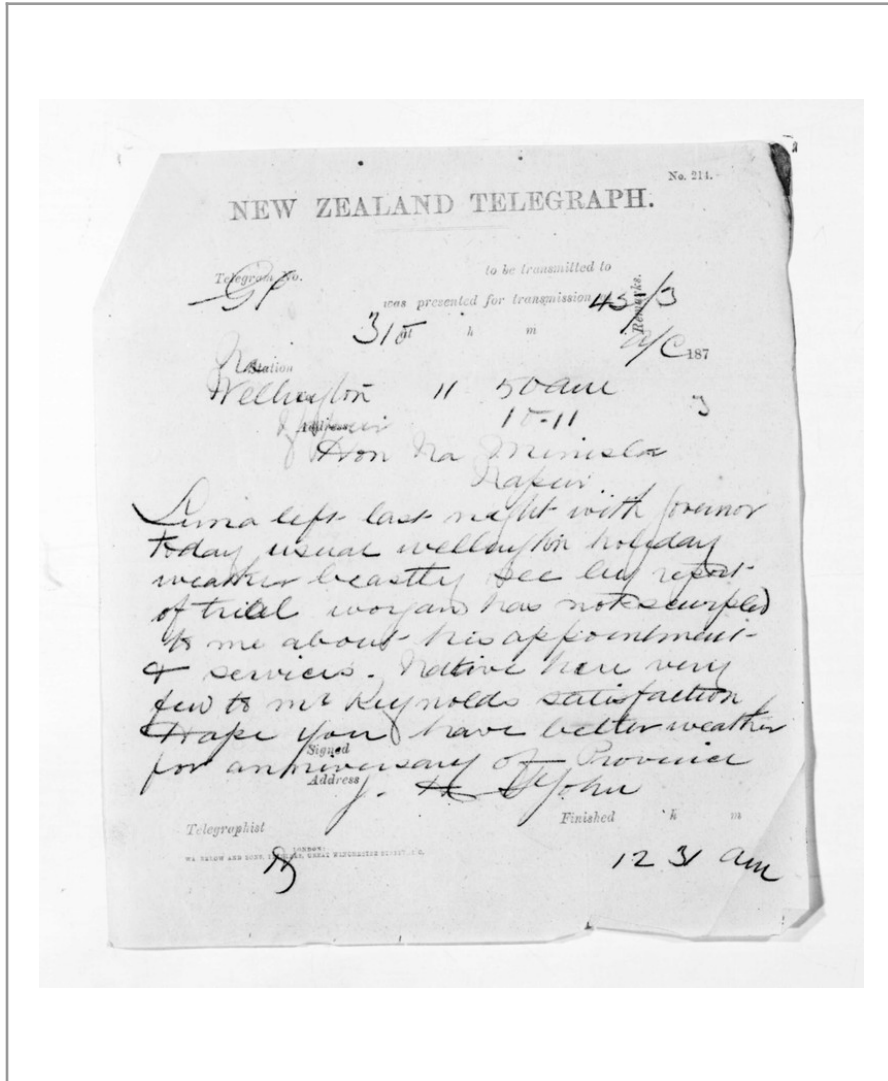 No. 214.
NEW ZEALAND TELEGRAPH.
Telegram No.
to be transmitted to
was presented for transmission
Remarks.
315 at h m
187
Station
Wellington 11 50 am
15-11
Address
Hon Na Minister
Napier
Luna left last night with Governor
Today usual wellington holiday
weather beastly See my report
of trial worgan has not scrupled
to me about his appointment
& services. Native here very
few to Mr Reynolds satisfaction
Hope you have better weather
for anniversary of Province
Signed
Address
J. H. St John
Telegraphist
Finished h m
LONDON:
12 31 am